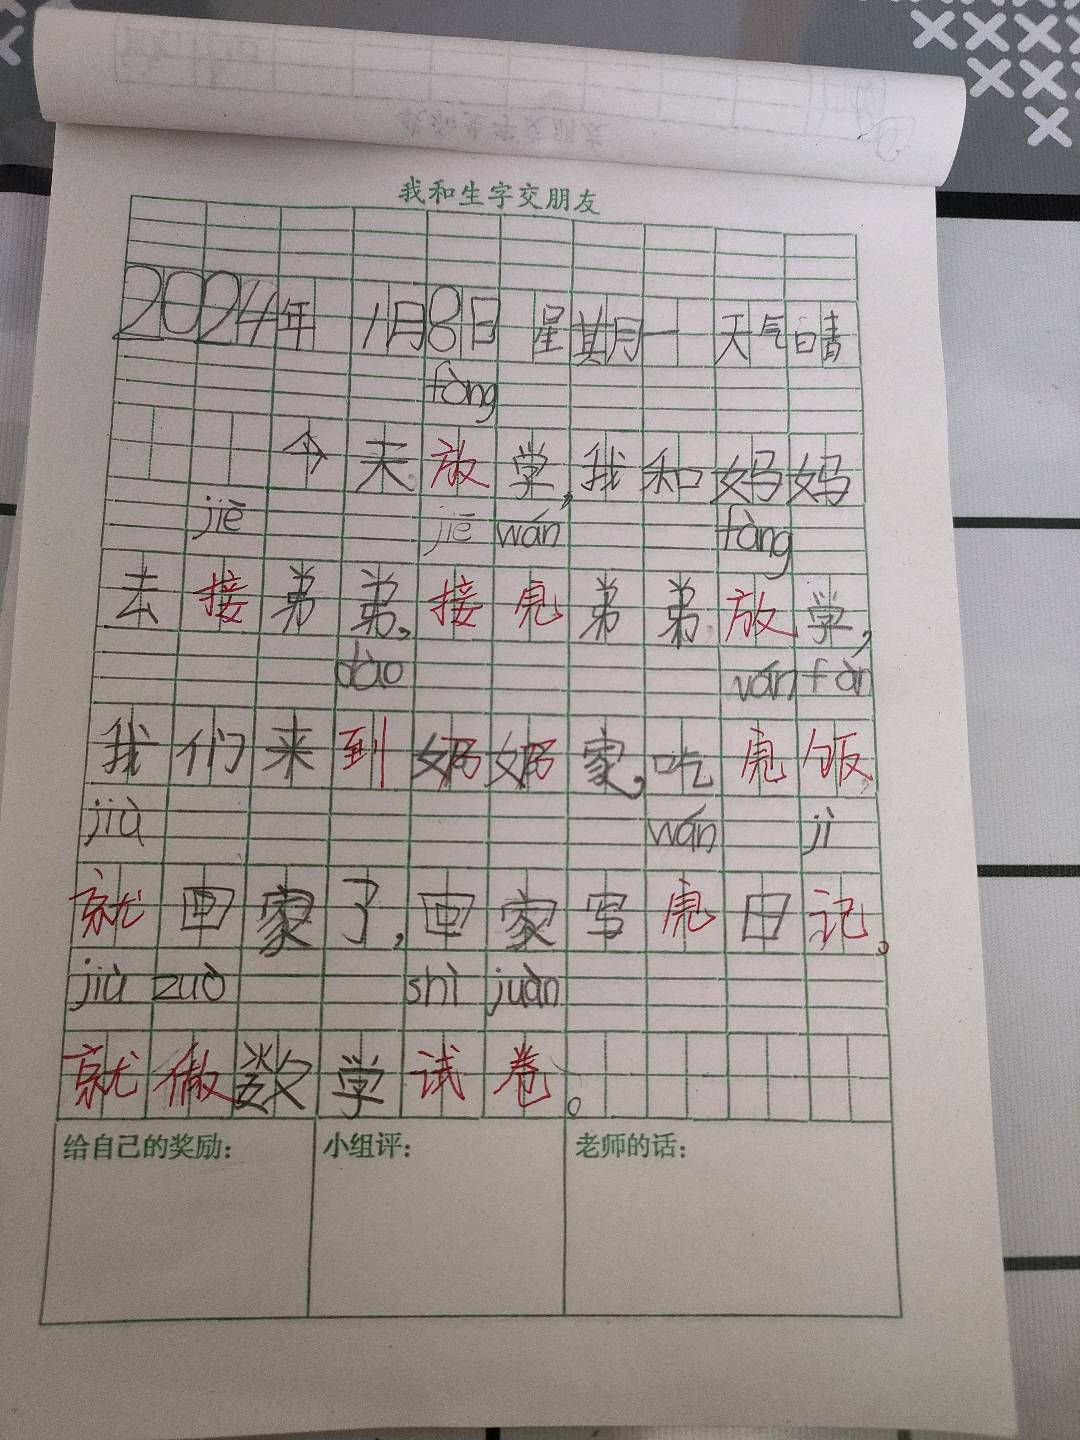 我和生字交朋友
2024年 1月8日 星期一 天气晴
fàng
今天放学,我和妈妈
jiē jiē wán fàng
去接弟弟,接完弟弟放学,
dào wán fàn
我们来到奶奶家,吃完饭,
jiù wán jì
就回家了,回家写完日记。
jiù zuò shì juàn
就做数学试卷。
给自己的奖励: 小组评: 老师的话: